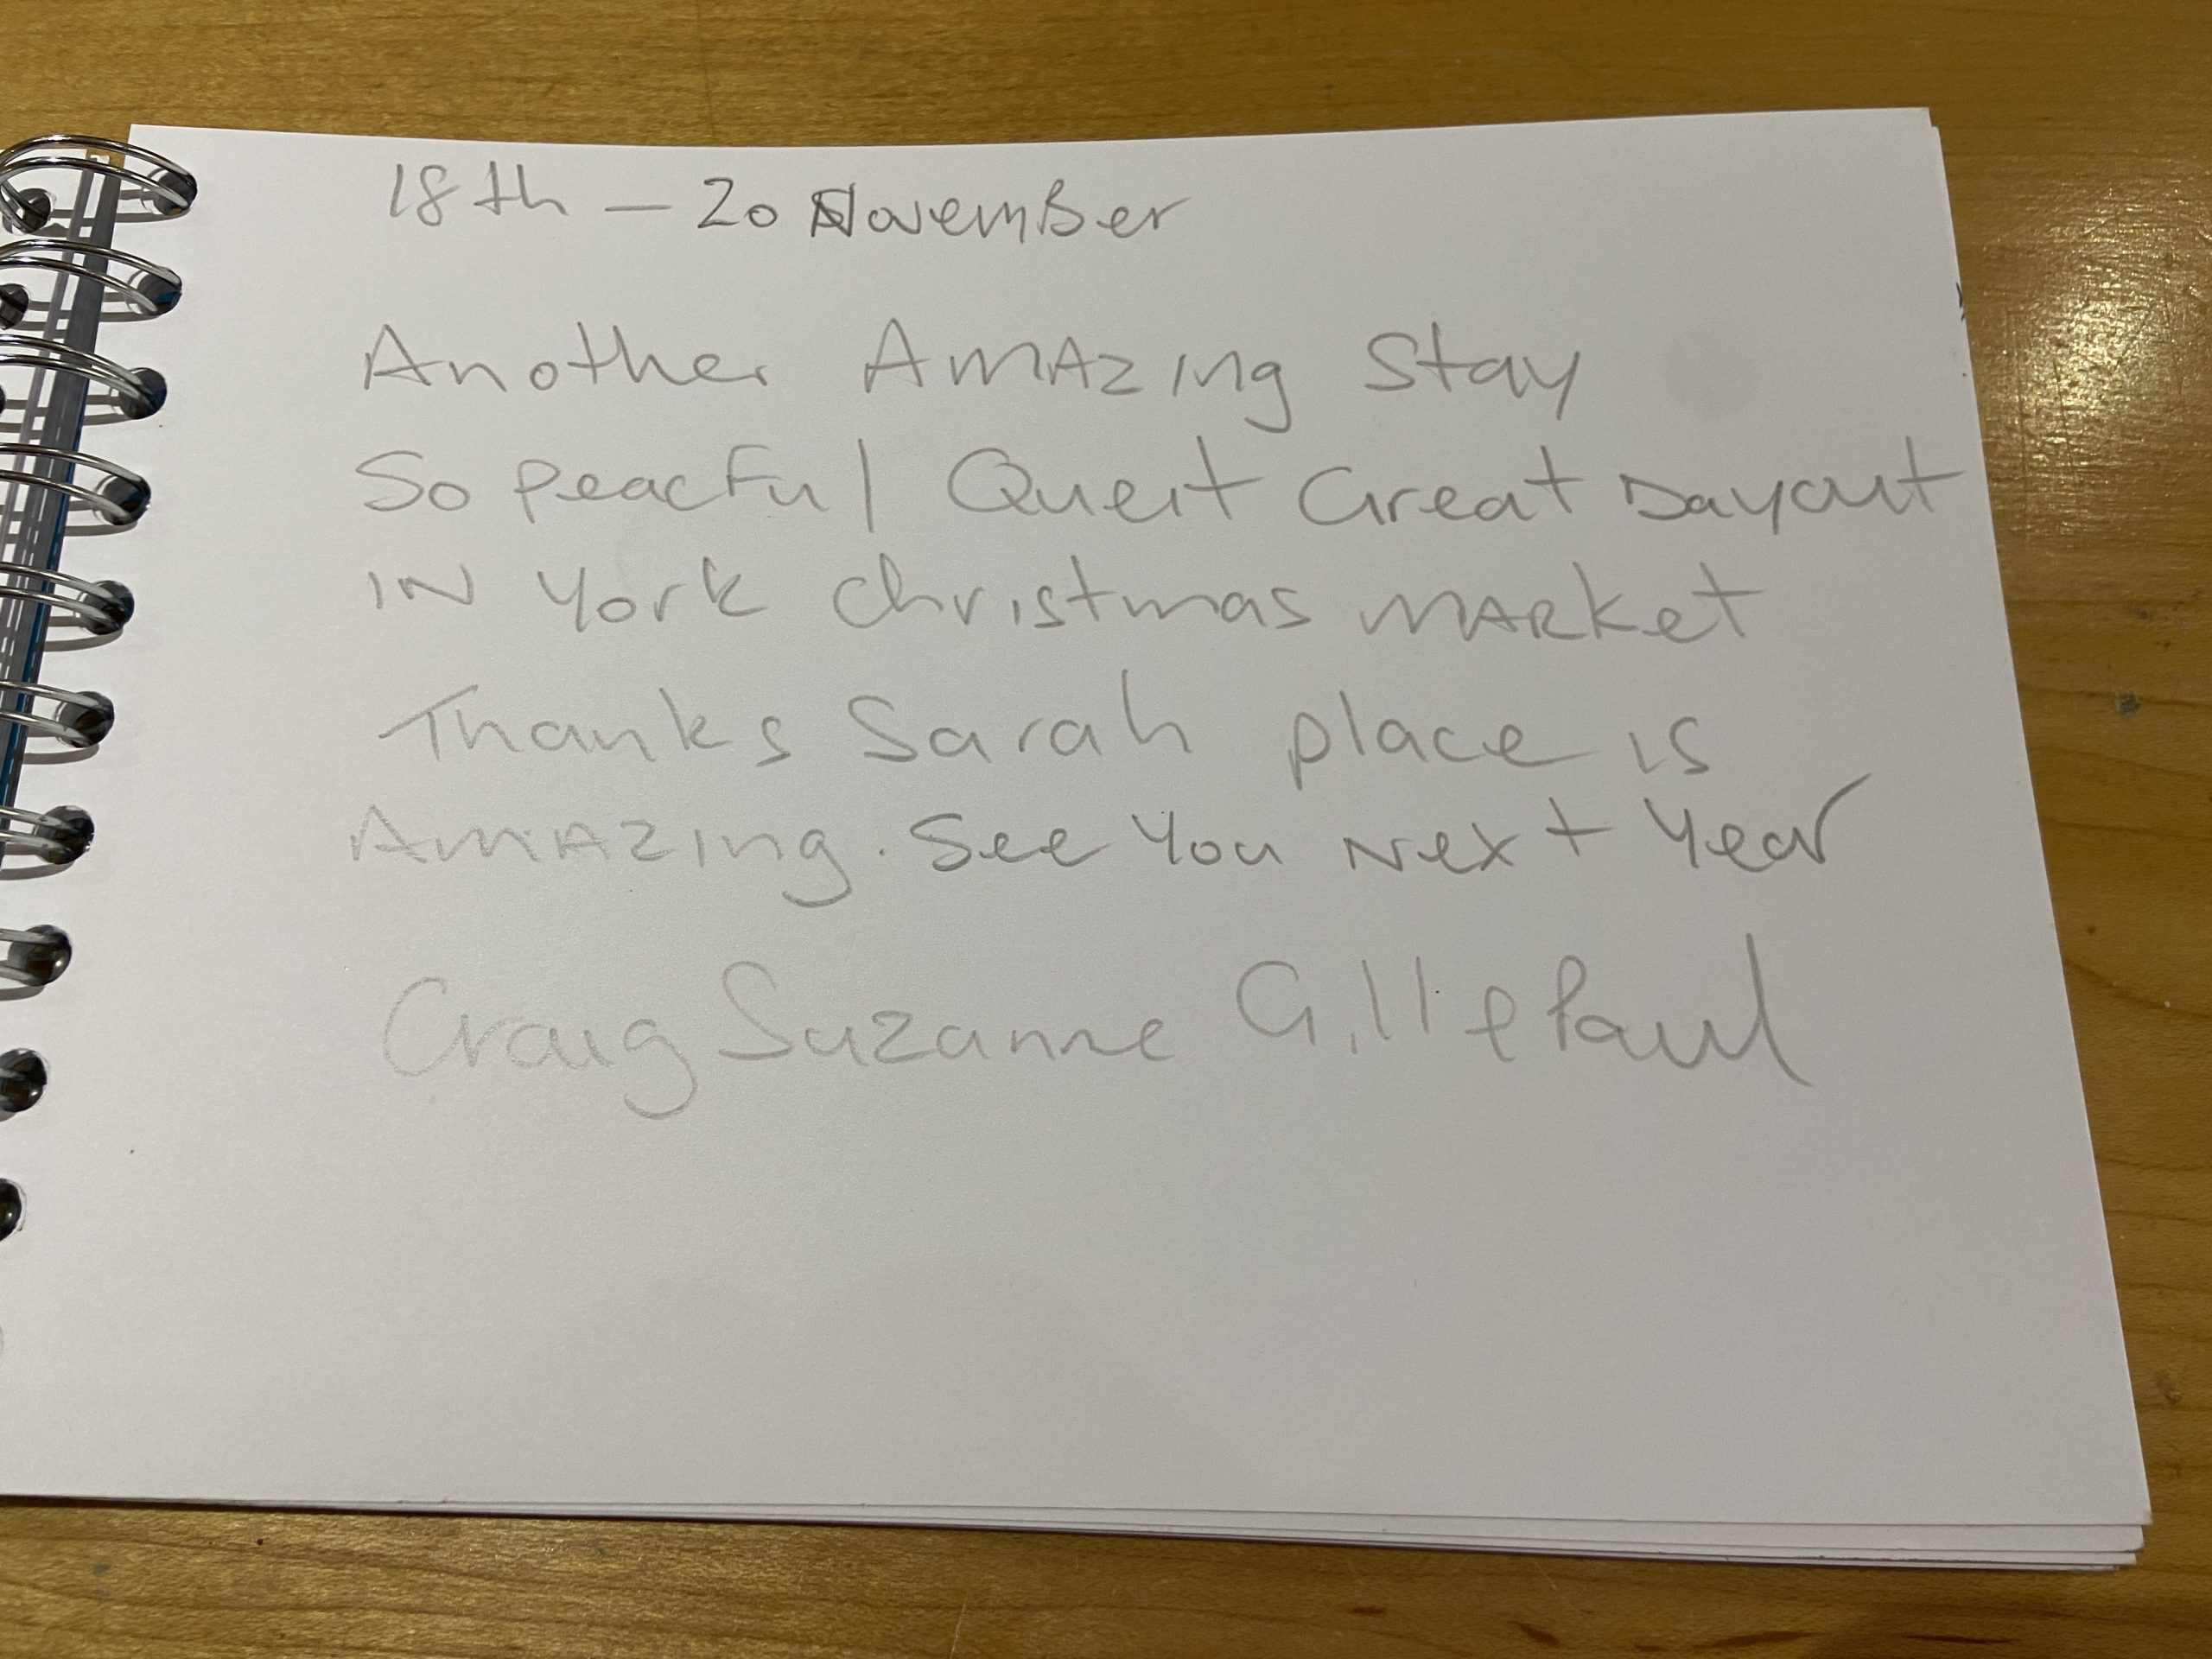 18th - 20 November
Another AmAzing Stay
So peacful Queit Great Dayout
IN York Christmas MARket
Thanks Sarah place is
AmAzing. See You Next Year
Craig Suzanne Gill & Paul